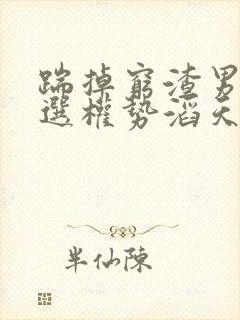 踹掉窮渣男
選權勢滔天
半仙陳